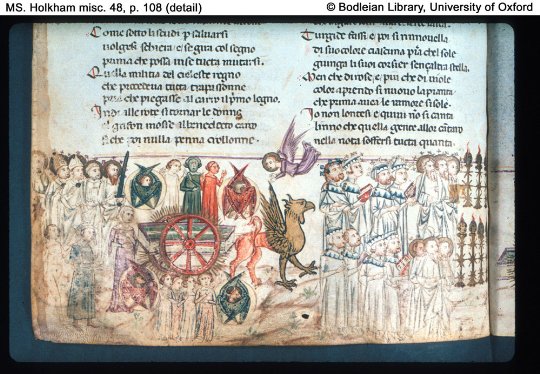 MS. Holkham misc. 48, p. 108 (detail)
© Bodleian Library, University of Oxford
Come sotto li scudi p saluarsi
uolgesi schiera e se gira col segno
prima che possa in se tucta mutarsi.
Quella militia del celeste regno
che procedeua tucta trapassonne
pria che piegasse al carro il pmo legno.
Indi alle rote si tornar le donne
el grifon mosse al benedecto carco
si che poi nulla penna crollonne.
Turgide fassi, e poi si rinnouella
di suo colore ciascuna pria chel sole
giunga li suoi corsier sençaltra stella.
Men che di rose, e piu che di uiole
colore aprendo si nnouo la pianta
che prima auea le ramora si sole.
Io non lontesi e qui non si canta
linno che quella gente allor cantaro
ne la nota soffersi tucta quanta.